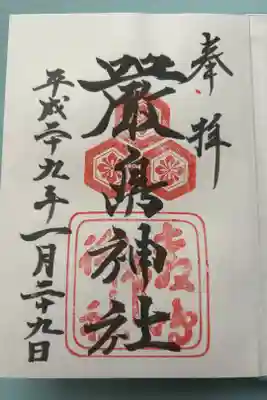 奉拝
嚴島神社
平成二十九年一月二十九日
嚴島神社